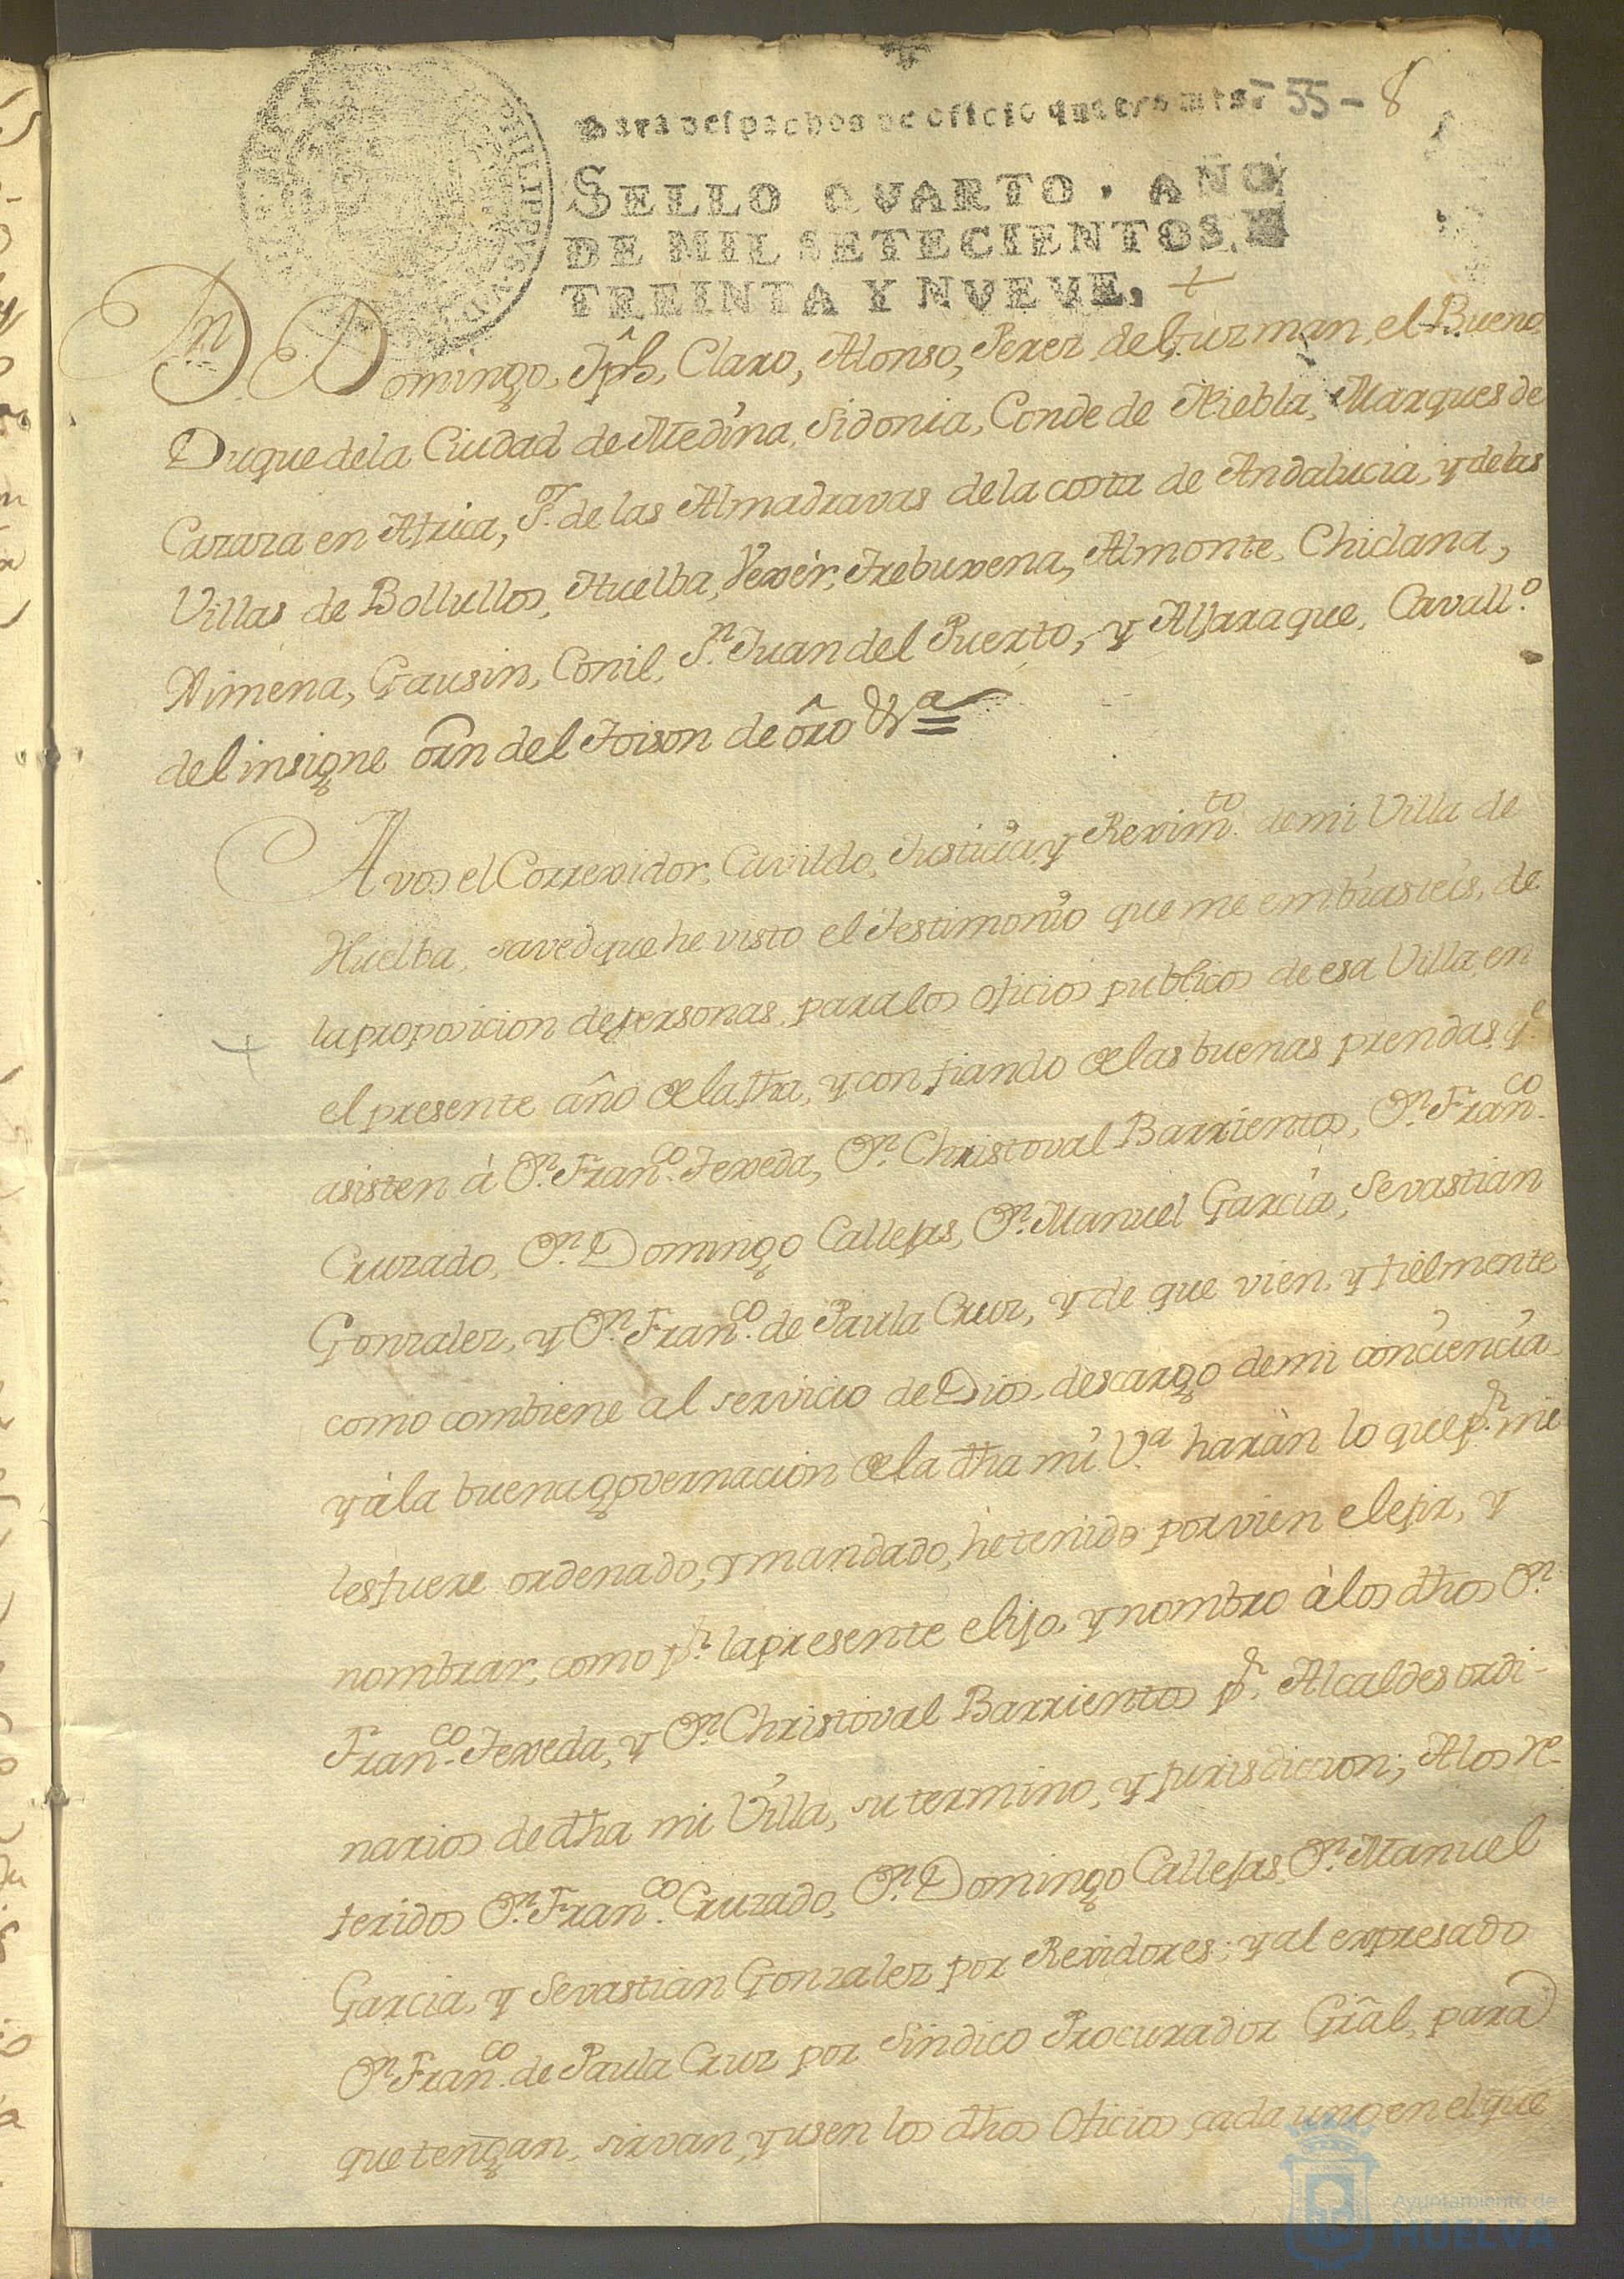 Para despachos de oficio quatro mrs. - 55 - 8
SELLO QVARTO, AÑO
DE MIL SETECIENTOS Y
TREINTA Y NVEVE.
Dn. Domingo, Jph, Claro, Alonso, Perez, de Guzman, el Bueno,
Duque de la Ciudad de Medina Sidonia, Conde de Niebla, Marques de
Cazaza en Africa, Sr. de las Almadravas de la costa de Andalucia, y de las
Villas de Bollullos, Huelba, Vexèr, Trebuxena, Almonte, Chiclana,
Ximena, Gausin, Conil, Sn. Juan del Puerto, y Alfaraque, Cavallo.
del insigne orn del Toison de oro &a
A vos el Correxidor, Cavildo, Justicia, y Reximto. de mi Villa de
Huelba, saved que he visto el Testimonio que me embiasteis, de
la proposicion de personas, para los oficios publicos de esa Villa, en
el presente año de la fha, y confiando de las buenas prendas, qe.
asisten à Dn. Franco. Texeda, Dn. Christoval Barrientos, Dn. Franco.
Cruzado, Dn. Domingo Callejas, Dn. Manuel Garcia, Sevastian
Gonzalez, y Dn. Franco. de Paula Cruz, y de que vien, y fielmente
como combiene al servicio de Dios, descargo de mi conciencia
y à la buena governacion de la dha mi Va. haràn lo que pr. mi
les fuere ordenado, y mandado, he tenido por vien elejir, y
nombrar, como pr. la presente elijo, y nombro à los dhos Dn.
Franco. Texeda, y Dn. Christoval Barrientos pr. Alcaldes ordi-
narios de dha mi Villa, su termino, y jurisdiccion; A los re-
feridos Dn. Franco. Cruzado, Dn. Domingo Callejas, Dn. Manuel
Garcia, y Sevastian Gonzalez por Rexidores; y al expresado
Dn. Franco. de Paula Cruz por Sindico Procurador Gral, para
que tengan, sirvan, y usen los dhos Oficios cada uno en el que
Ayuntamiento de
HUELVA